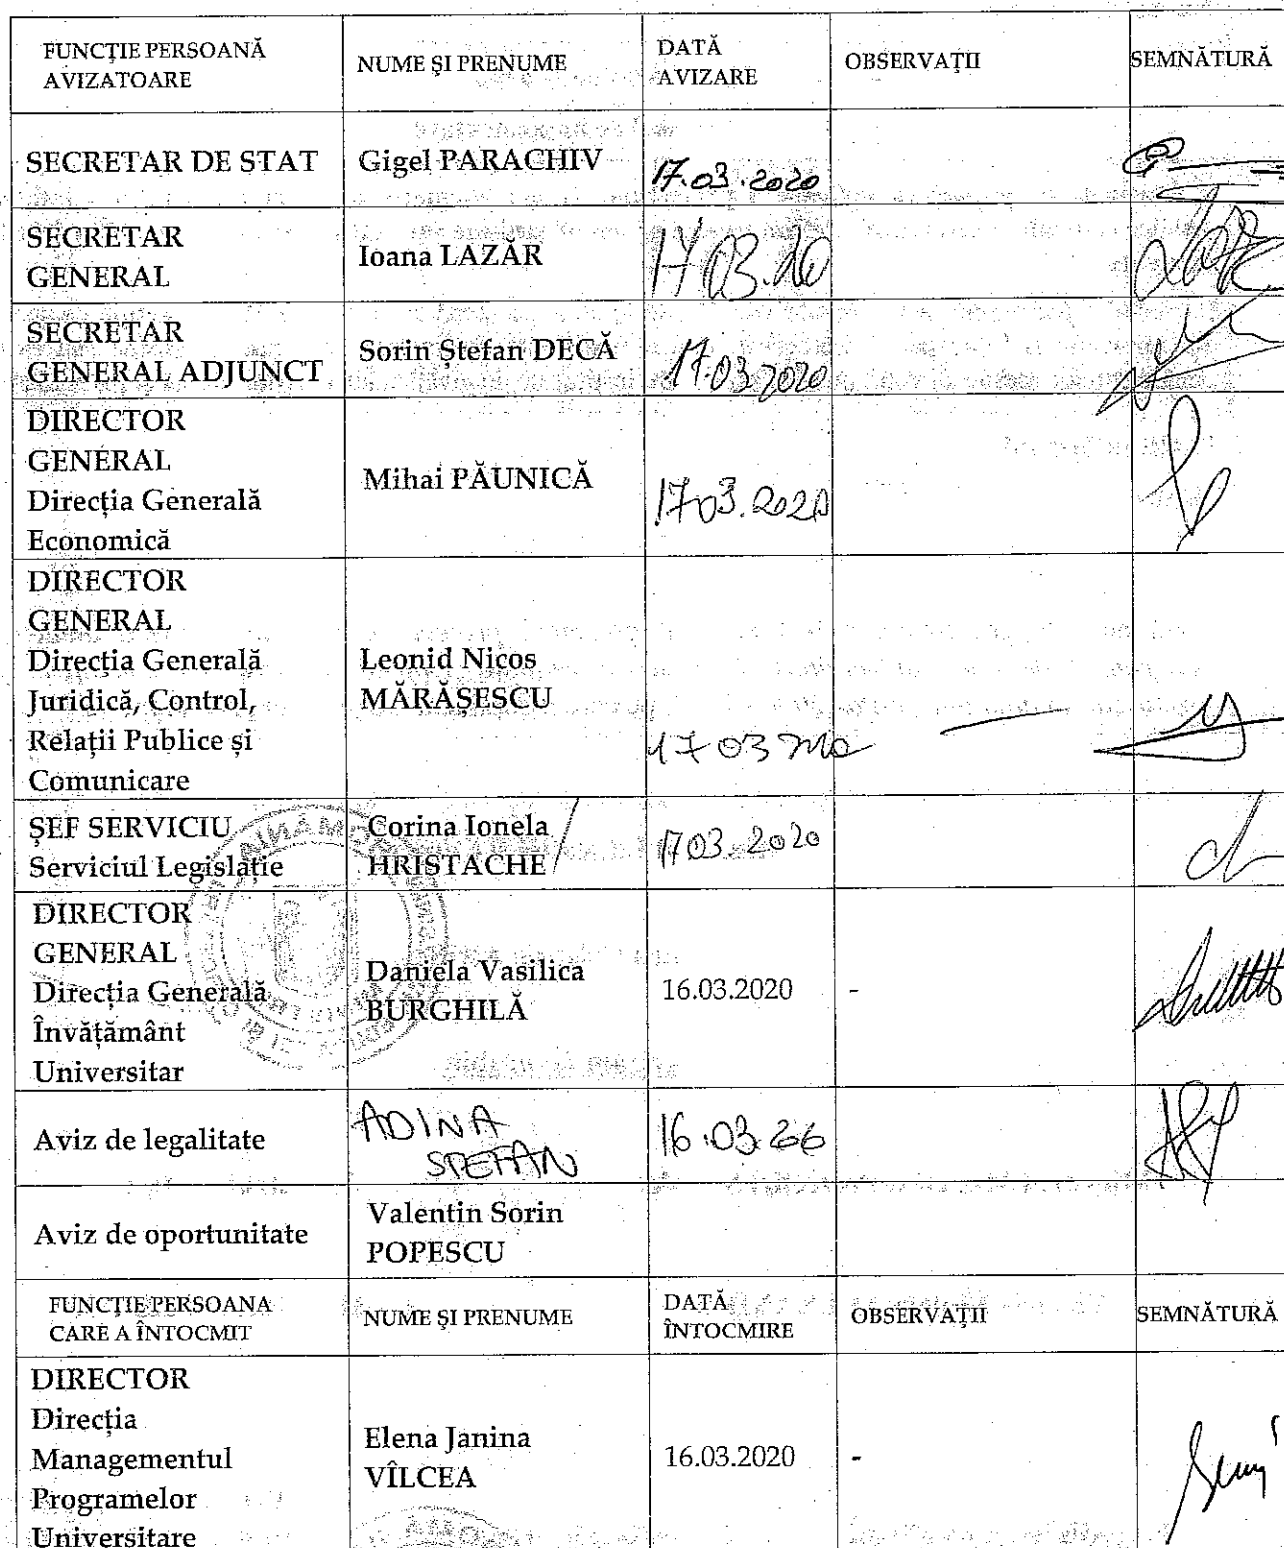 FUNCŢIE PERSOANĂ
AVIZATOARE
NUME ŞI PRENUME
DATĂ
AVIZARE
OBSERVAŢII
SEMNĂTURĂ
SECRETAR DE STAT
Gigel PARACHIV
17.03.2020
SECRETAR
GENERAL
Ioana LAZĂR
17.03.20
SECRETAR
GENERAL ADJUNCT
Sorin Ştefan DECĂ
17.03.2020
DIRECTOR
GENERAL
Direcţia Generală
Economică
Mihai PĂUNICĂ
17.03.2020
DIRECTOR
GENERAL
Direcţia Generală
Juridică, Control,
Relaţii Publice şi
Comunicare
Leonid Nicos
MĂRĂŞESCU
17 03 2020
ŞEF SERVICIU
Serviciul Legislaţie
Corina Ionela
HRISTACHE
17.03.2020
DIRECTOR
GENERAL
Direcţia Generală
Învăţământ
Universitar
Daniela Vasilica
BURGHILĂ
16.03.2020
-
Aviz de legalitate
ADINA
STEFAN
16.03.20
Aviz de oportunitate
Valentin Sorin
POPESCU
FUNCŢIE PERSOANA
CARE A ÎNTOCMIT
NUME ŞI PRENUME
DATĂ
ÎNTOCMIRE
OBSERVAŢII
SEMNĂTURĂ
DIRECTOR
Direcţia
Managementul
Programelor
Universitare
Elena Janina
VÎLCEA
16.03.2020
-